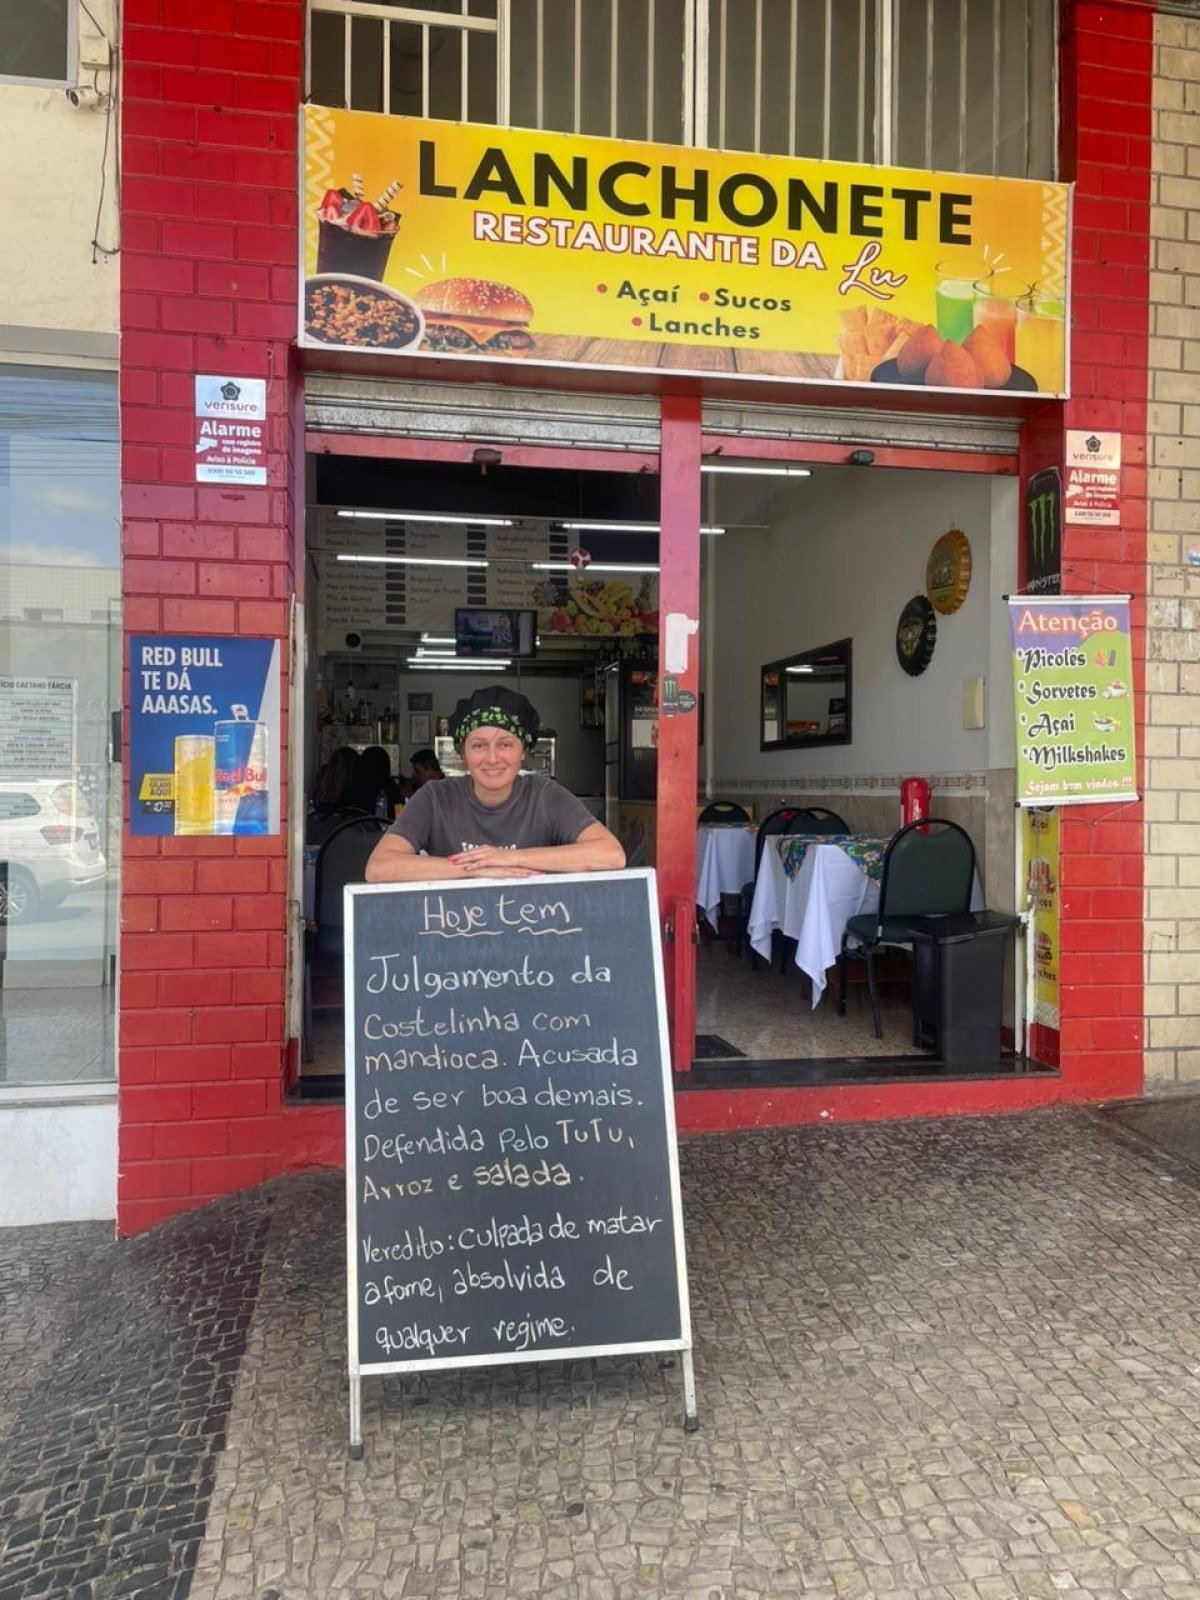 LANCHONETE
RESTAURANTE DA Lu
• Açaí • Sucos
• Lanches
verisure
Alarme
com registro
de imagens
Aviso à Polícia
verisure
Alarme
com registro
de imagens
Aviso à Polícia
MONSTER
RED BULL
TE DÁ
AAASAS.
Red Bull
AQUI
Atenção
*Picolés
*Sorvetes
*Açai
*Milkshakes
Sejam bem vindos !!!
Hoje tem
Julgamento da
Costelinha com
mandioca. Acusada
de ser boa demais.
Defendida pelo TuTu,
Arroz e salada.
Veredito: culpada de matar
a fome, absolvida de
qualquer regime.